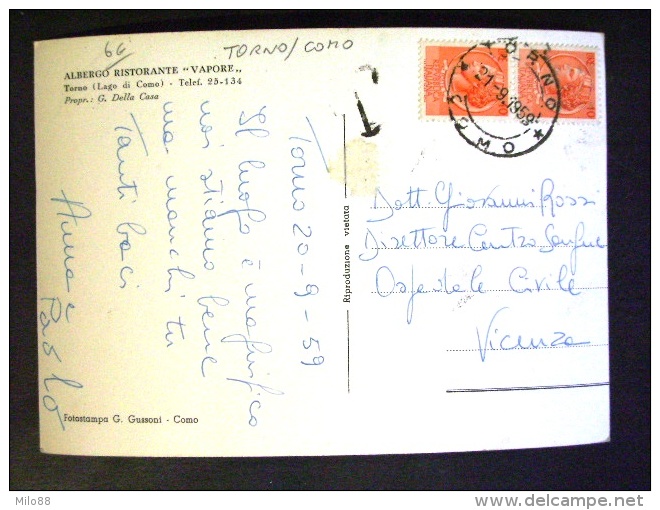 66
TORNO/COMO
ALBERGO RISTORANTE "VAPORE„
Torno (Lago di Como) - Telef. 25-134
Propr.: G. Della Casa
T
TORNO
COMO
21-9.1959
Torno 20-9-59
Il luogo è magnifico
noi stiamo bene
ma manchi tu
Tanti baci
Anna e
Paolo
Riproduzione vietata
Dott. Giovanni Rossi
Direttore Centro Sangue
Ospedale Civile
Vicenza
Fotostampa G. Gussoni - Como
Milo88
www.delcampe.net